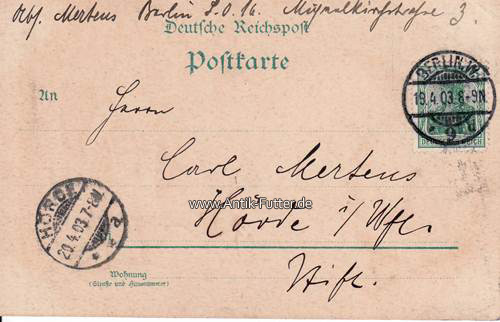 Abs. Mertens Berlin S.O. 16. Michaelkirchstrasse 3.
Deutsche Reichspost
Postkarte
An
Herrn
BERLIN, W.
19.4.03.8-9N.
* 9 a
Carl Mertens
www.Antik-Futter.de
Hörde i/Wfl.
HÖRDE
20.4.03.7-8V.
* * a
Wohnung
(Straße und Hausnummer)
Stift.